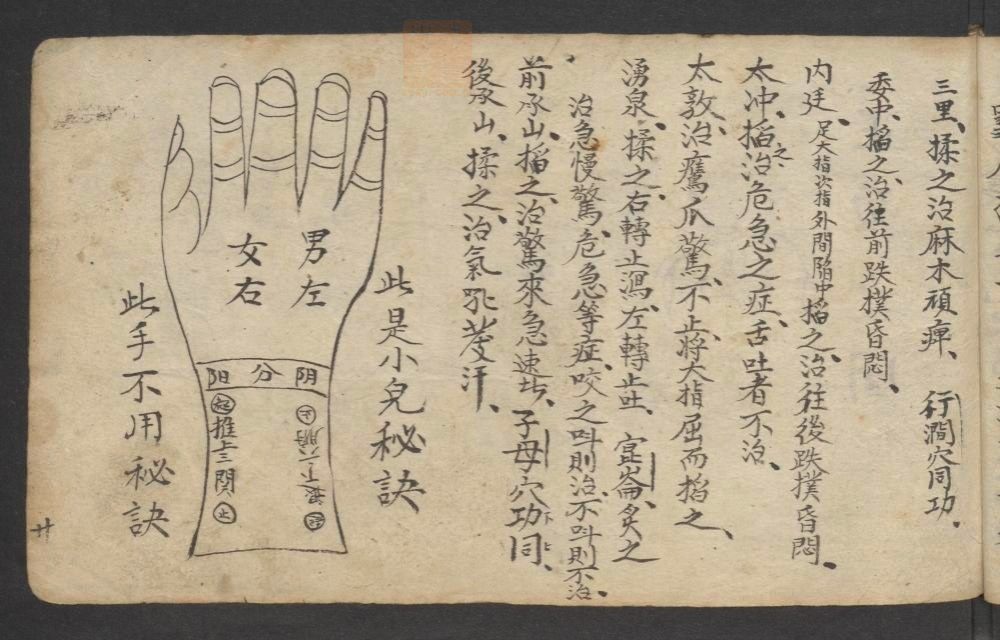 三里、揉之治麻木頑痺、 行澗穴同功、
委中、掐之、治往前跌撲昏悶、
内廷、足大指次指外間陷中掐之、治往後跌撲昏悶、
太冲、掐之治危急之症、舌吐者不治、
太敦、治鷹爪驚、不止、將大指屈而掐之、
湧泉、揉之、右轉止瀉、左轉止吐、 崑崙、炙之
治急慢驚、危急等症、咬之呌則治、不呌則不治、
前承山、掐之、治驚來急速者、子母穴功同、
後承山、揉之、治氣吼發汗、
此是小兒秘訣
男左
女右
阴分阳
起推上三関止
起退下六腑止
此手不用秘訣
廿